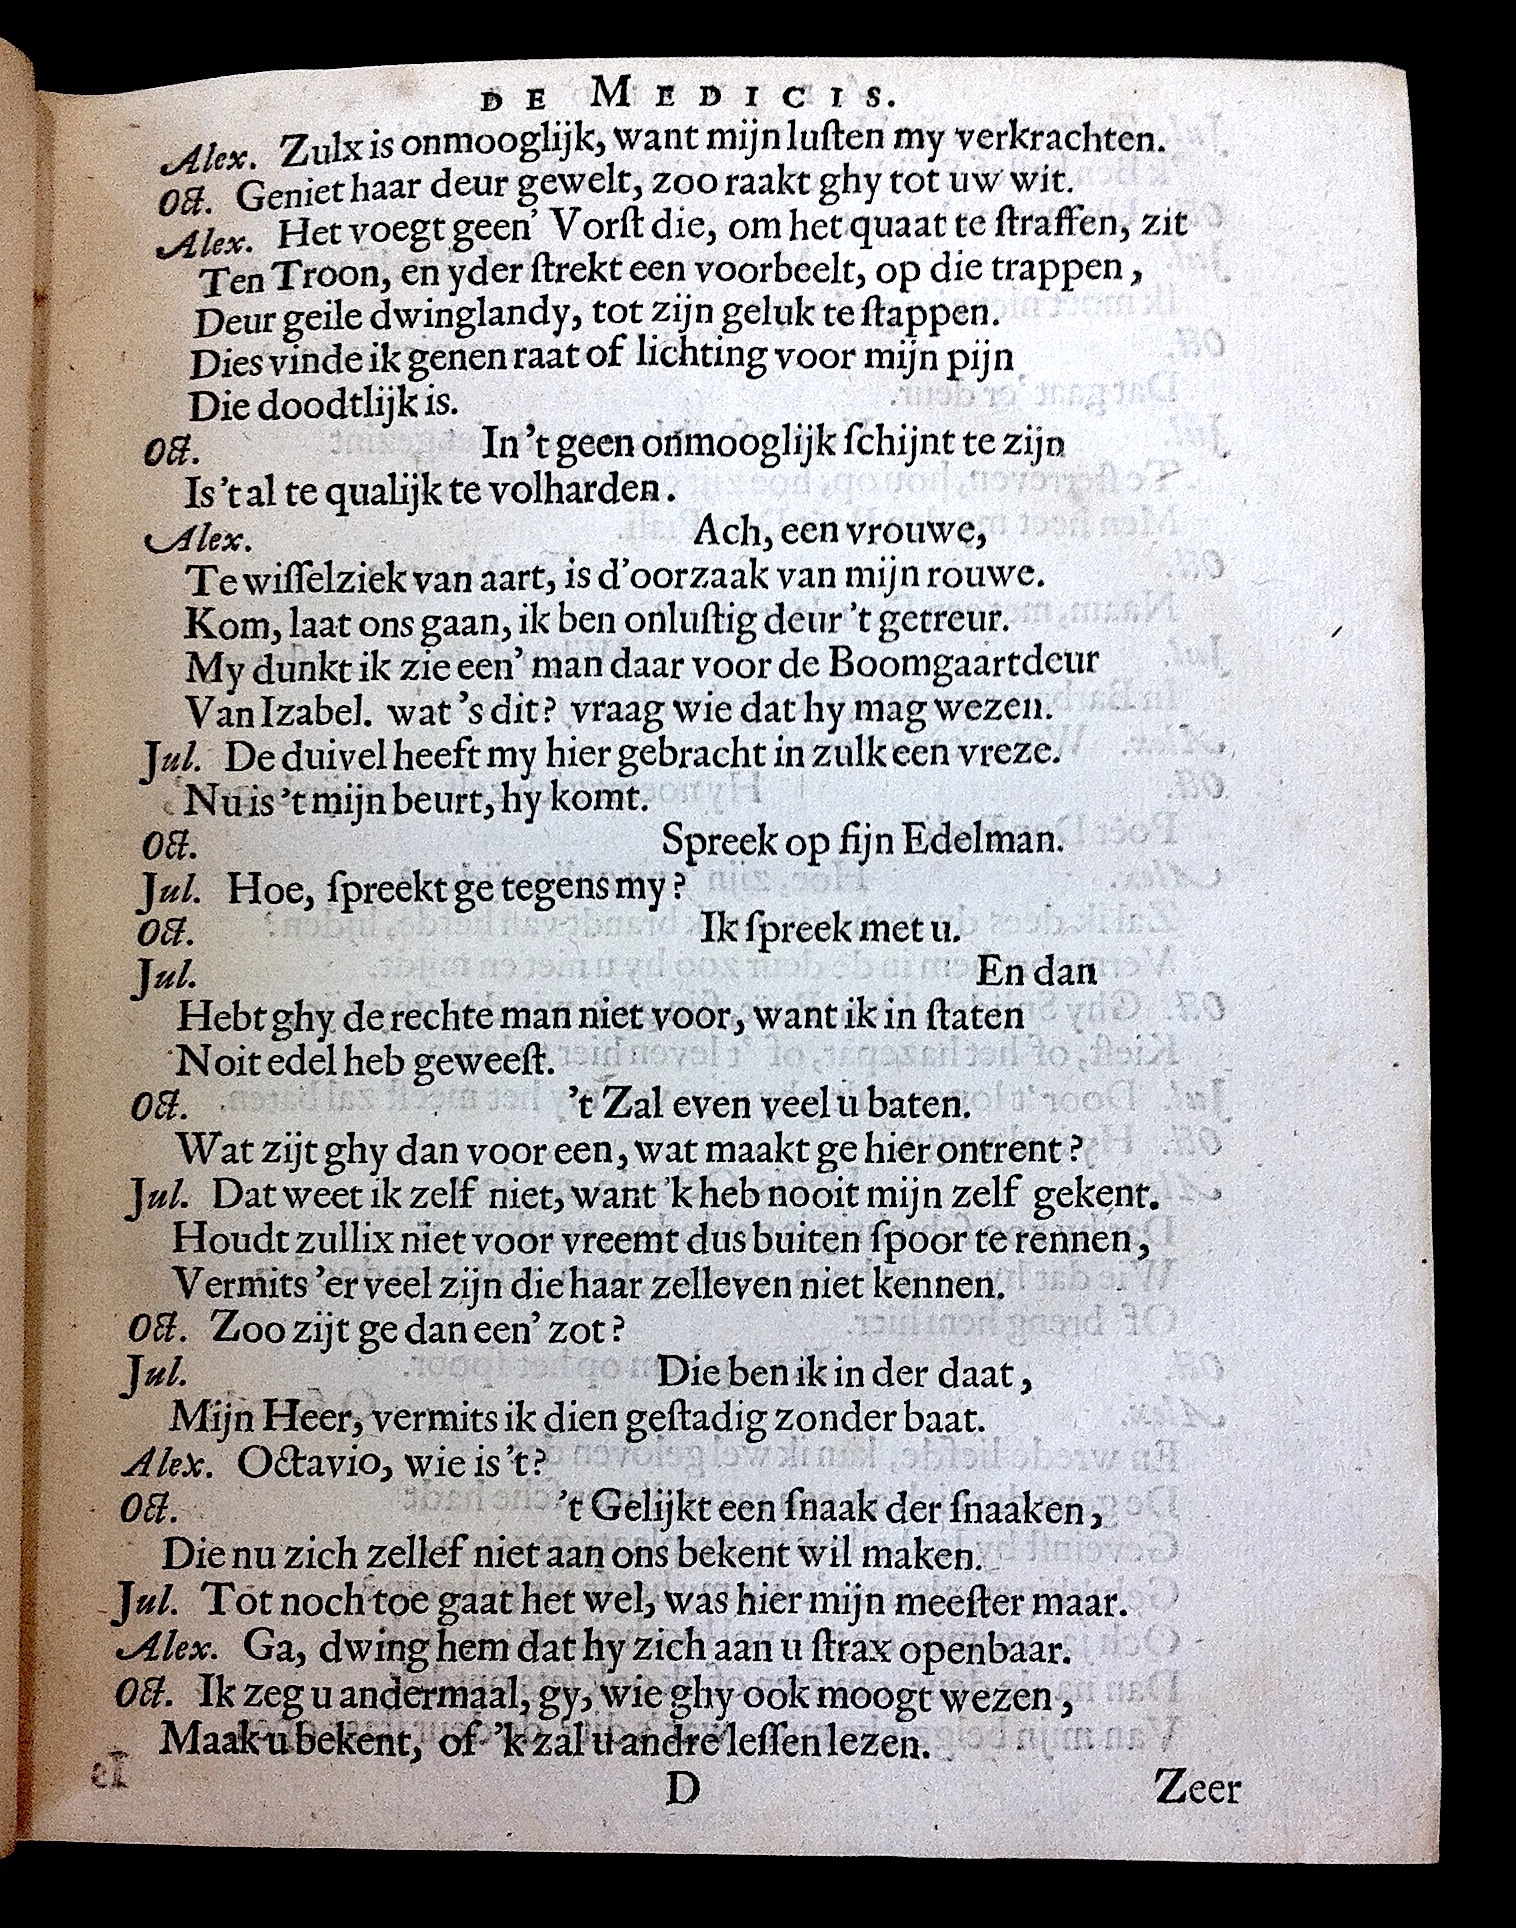 DE MEDICIS.
Alex. Zulx is onmooglijk, want mijn luſten my verkrachten.
Oct. Geniet haar deur gewelt, zoo raakt ghy tot uw wit.
Alex. Het voegt geen' Vorſt die, om het quaat te ſtraffen, zit
Ten Troon, en yder ſtrekt een voorbeelt, op die trappen,
Deur geile dwinglandy, tot zijn geluk te ſtappen.
Dies vinde ik genen raat of lichting voor mijn pijn
Die doodtlijk is.
Oct. In 't geen onmooglijk ſchijnt te zijn
Is 't al te qualijk te volharden.
Alex. Ach, een vrouwe,
Te wiſſelziek van aart, is d'oorzaak van mijn rouwe.
Kom, laat ons gaan, ik ben onluſtig deur 't getreur.
My dunkt ik zie een' man daar voor de Boomgaartdeur
Van Izabel. wat 's dit? vraag wie dat hy mag wezen.
Jul. De duivel heeft my hier gebracht in zulk een vreze.
Nu is 't mijn beurt, hy komt.
Oct. Spreek op fijn Edelman.
Jul. Hoe, ſpreekt ge tegens my?
Oct. Ik ſpreek met u.
Jul. En dan
Hebt ghy de rechte man niet voor, want ik in ſtaten
Noit edel heb geweeſt.
Oct. 't Zal even veel u baten.
Wat zijt ghy dan voor een, wat maakt ge hier ontrent?
Jul. Dat weet ik zelf niet, want 'k heb nooit mijn zelf gekent.
Houdt zullix niet voor vreemt dus buiten ſpoor te rennen,
Vermits 'er veel zijn die haar zelleven niet kennen.
Oct. Zoo zijt ge dan een' zot?
Jul. Die ben ik in der daat,
Mijn Heer, vermits ik dien geſtadig zonder baat.
Alex. Octavio, wie is 't?
Oct. 't Gelijkt een ſnaak der ſnaaken,
Die nu zich zellef niet aan ons bekent wil maken.
Jul. Tot noch toe gaat het wel, was hier mijn meeſter maar.
Alex. Ga, dwing hem dat hy zich aan u ſtrax openbaar.
Oct. Ik zeg u andermaal, gy, wie ghy ook moogt wezen,
Maak u bekent, of 'k zal u andre leſſen lezen.
D Zeer